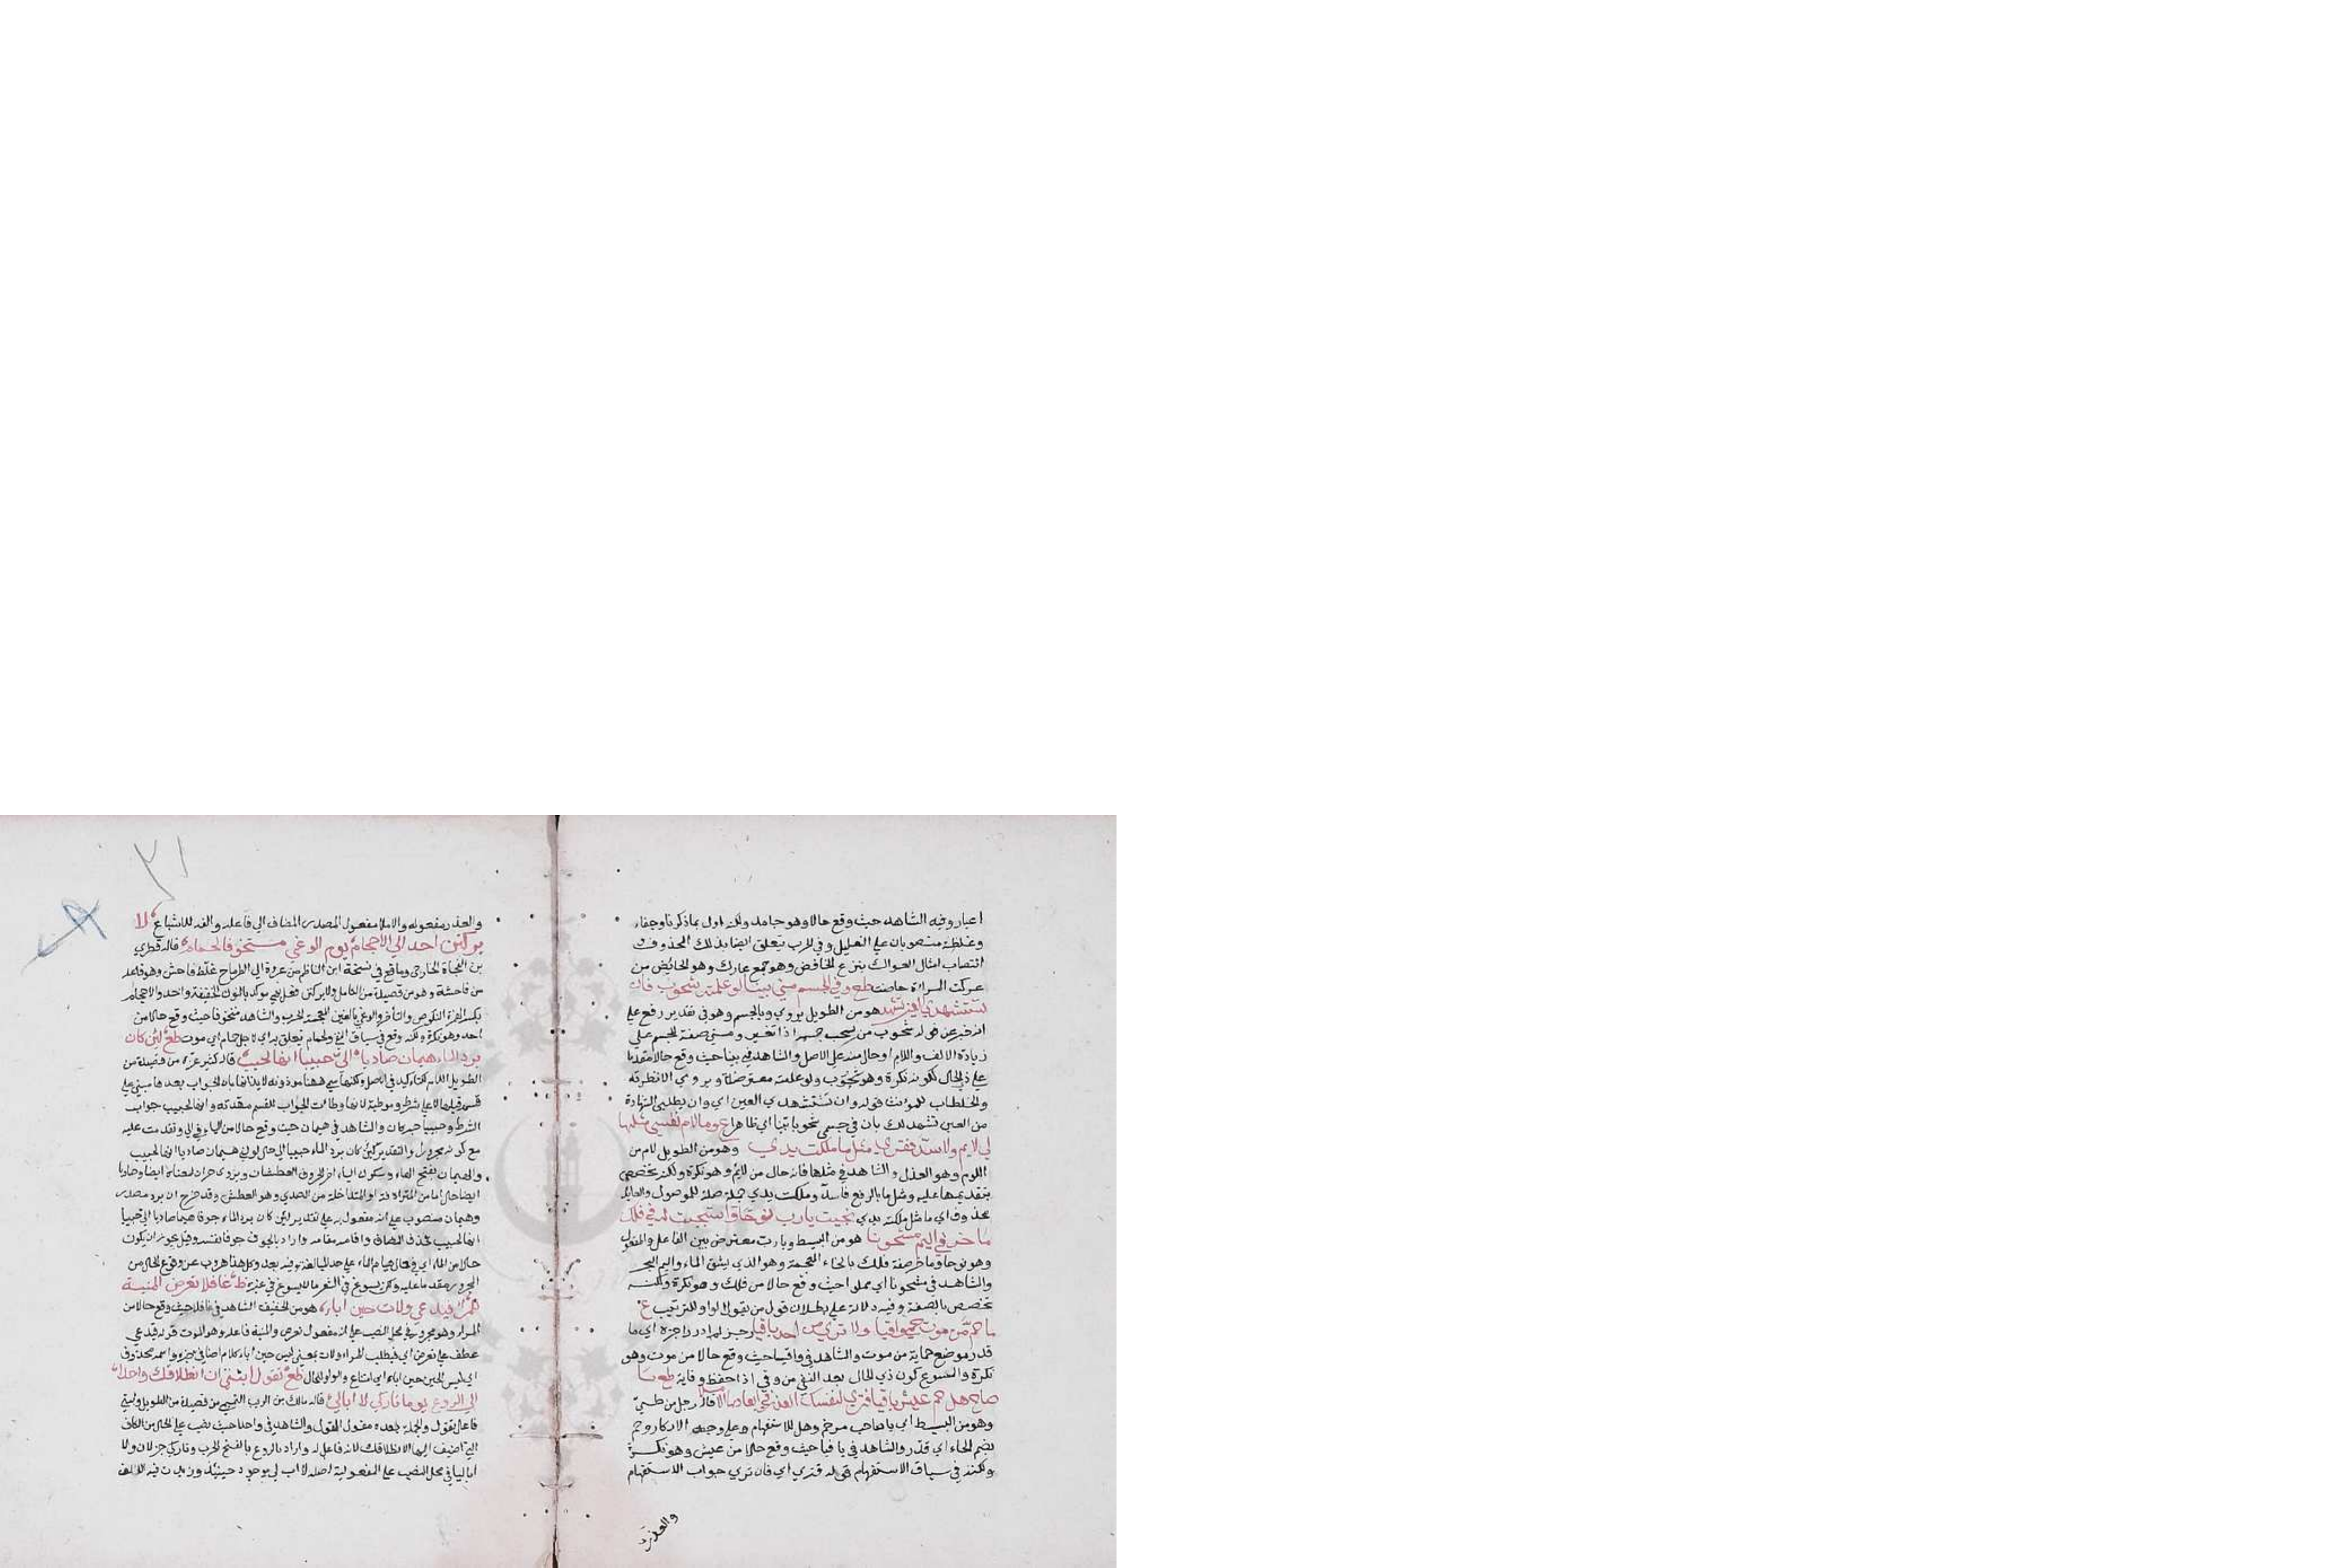 اعيار وفيه الشاهد حيث وقع حالا وهو جامد ولكنه اول بما ذكرنا وجفاء
وغلظة منصوبان علي التعليل وفي الحرب يتعلق ايضا بذلك المحذوف و
انتصاب امثال العوارك بنزع الخافض وهو جمع عارك وهو الحائض من
عركت المراة حاضت ظع وفي الجسم مني بينا لو علمته شحوب فان
تستشهدي العين تشهد هو من الطويل يروي وبالجسم وهو في تقدير رفع علي
انه خبر عن قوله شحوب من شحب جسمه اذا تغير ومني صفة للجسم علي
زيادة الالف واللام او حال منه علي الاصل والشاهد في بينا حيث وقع حالا مقدما
علي ذي الحال لكونه نكرة وهو شحوب ولو علمته معترضة ويروي ان نظرته
والخطاب للمونث قوله وان تستشهدي العين اي وان تطلبي الشهادة
من العين تشهد لك بان في جسمي شحوبا بينا اي ظاهرا ع وما لام نفسي مثلها
لي لايم ولا سد فقري مثل ما ملكت يدي وهو من الطويل لام من
اللوم وهو العذل والشاهد في مثلها فانه حال من لايم وهو نكرة ولكنه تخصص
بتقديمها عليه ومثل ما بالرفع فاسد وملكت يدي جملة صلة للموصول والعايد
محذوف اي ما مثل ملكته يدي نجيت يارب نوحا واستجبت له في فلك
ماخر في اليم مشحونا هو من البسيط ويا رب معترض بين الفاعل والمفعول
وهو نوحا وماخر صفة فلك بالخاء المعجمة وهو الذي يشق الماء واليم البحر
والشاهد في مشحونا اي مملوا حيث وقع حالا من فلك وهو نكرة ولكنه
تخصص بالصفة وفيه دلالة علي بطلان قول من يقول الواو للترتيب ع
ما حم من موت حمي واقيا ولا تري من احد باقيا رجز لم ادر راجزه اي ما
قدر موضع حماية من موت والشاهد في واقيا حيث وقع حالا من موت وهو
نكرة والمسوغ كون ذي الحال بعد النفي من وقي اذا حفظ وقاية ظع يا
صاح هل حم عيش باقيا فتري لنفسك العذر في ابعادها الاملا قاله رجل من طيئ
وهو من البسيط اي يا صاحب مرخم وهل للاستفهام وعلي وجه الانكار وحم
بضم الحاء اي قدر والشاهد في باقيا حيث وقع حالا من عيش وهو نكرة
ولكنه في سياق الاستفهام قوله فتري اي فان تري جواب الاستفهام
والعذر
والعذر مفعوله والاملا مفعول المصدر المضاف الي فاعله والفه للاشباع لا
يركنن احد الي الاحجام يوم الوغي متخوفا لحمام قاله قطري
بن الفجاة الخارجي وما وقع في نسخة ابن الناظم من عزوه الي الطرماح غلط فاحش وهو قاعد
من فاحشة وهو من قصيدة من الكامل ولا يركنن فعل نهي موكد بالنون الخفيفة واحد والاحجام
بكسر الهمزة النكوص والتأخر والوغي بالغين المعجمة الحرب والشاهد متخوفا حيث وقع حالا من
احد وهو نكرة ولكنه وقع في سياق النفي ولحمام يتعلق به اي لاجل حمام اي موت ظع لئن كان
برد الماء هيمان صاديا الي حبيبا انها لحبيب قاله كثير عزة من قصيدة من
الطويل اللام للتاكيد في الاصل ولكنها تسمي ههنا موذونة لايذانها بان الجواب بعدها مبني علي
قسم قبلها لا علي شرط وموطية لانها وطات الجواب للقسم مهدته وانها لحبيب جواب
الشرط وحبيبا خبر كان والشاهد في هيمان حيث وقع حالا من الياء في الي وتقدمت عليه
مع كونه مجرورا والتقدير لئن كان برد الماء حبيبا الي حال كوني هيمان صاديا انها لحبيب
والهيمان بفتح الهاء وسكون الياء اخر الحروف العطشان ويروي حران بمعناه ايضا وصاديا
ايضا حال اما من المترادفة او المتداخلة من الصدي وهو العطش وقد خرج ان برد مصدر
وهيمان منصوب علي انه مفعول به علي تقدير لئن كان برد الماء جوفا هيمانا صاديا الي حبيبا
انها لحبيب فحذف المضاف واقامه مقامه واراد بالجوف جوفا نفسه وقيل يجوز ان يكون
حالا من الماء اي في حال هيام الماء علي حد المبالغة وفيه بعد وكل هذا هروب عن وقوع الحال من
المجرور مقدما عليه ولكن يسوغ في الشعر ما لا يسوغ في غيره ظ غافلا تعرض المنية
للمرء فيدعي ولات حين اباء هو من الخفيف الشاهد في غافلا حيث وقع حالا من
المرء وهو مجرور في محل النصب علي انه مفعول تعرض والمنية فاعله وهو الموت قوله فيدعي
عطف علي تعرض اي فيطلب المرء ولات بمعني ليس حين اباء كلام اضافي خبره واسمه محذوف
اي ليس الحين حين اباء اي امتناع والواو للحال ظع تقول ابنتي ان انطلاقك واحدا
الي الروع يوما تاركي لا اباليا قاله مالك بن الريب التميمي من قصيدة من الطويل وابنتي
فاعل تقول والجملة بعده مفعول القول والشاهد في واحدا حيث نصب علي الحال من الكاف
التي اضيف اليها الانطلاق لانه فاعل له واراد بالروع بالفتح الحرب وتاركي خبر لان ولا
اباليا في محل النصب علي المفعولية اصله لا اب لي موجود حينئذ وزيدت فيه الالف